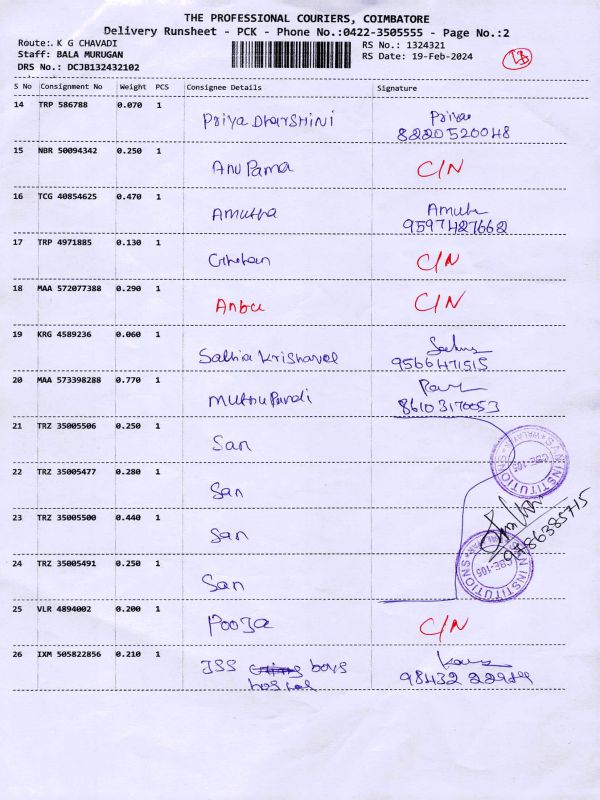 THE PROFESSIONAL COURIERS, COIMBATORE
Delivery Runsheet - PCK - Phone No.:0422-3505555 - Page No.:2
Route:. K G CHAVADI
Staff: BALA MURUGAN
DRS No.: DCJB132432102
RS No.: 1324321
RS Date: 19-Feb-2024
S No Consignment No Weight PCS Consignee Details Signature
14 TRP 586788 0.070 1
Priya Dharshini Priya
8220520048
15 NBR 50094342 0.250 1
Anu Pama C/N
16 TCG 40854625 0.470 1
Amutha
9597427662
17 TRP 4971885 0.130 1
C/N
18 MAA 572077388 0.290 1
Anbu C/N
19 KRG 4589236 0.060 1
Sathia Krishavel
9566471515
20 MAA 573398288 0.770 1
Muthu Pandi
86103170053
21 TRZ 35005506 0.250 1
San
22 TRZ 35005477 0.280 1
San
23 TRZ 35005500 0.440 1
San
9786385715
24 TRZ 35005491 0.250 1
San
CBE-105
25 VLR 4894002 0.200 1
Pooja C/N
26 IXM 505822856 0.210 1
JSS boys
hostel
98432